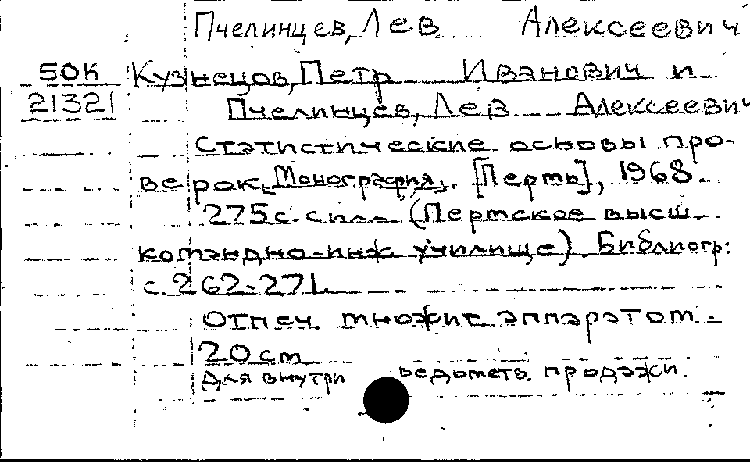 Пчелинцев, Лев Алексеевич
50К Кузнецов, Петр Иванович и
21321 Пчелинцев, Лев Алексеевич
Статистические основы про-
верок. Монография. [Пермь], 1968.
275 с. с илл. (Пермское высш.
командно-инж училище). Библиогр:
с. 262-271.
Отпеч. множит. аппаратом.
20 см
Для внутри ведомств. продажи.